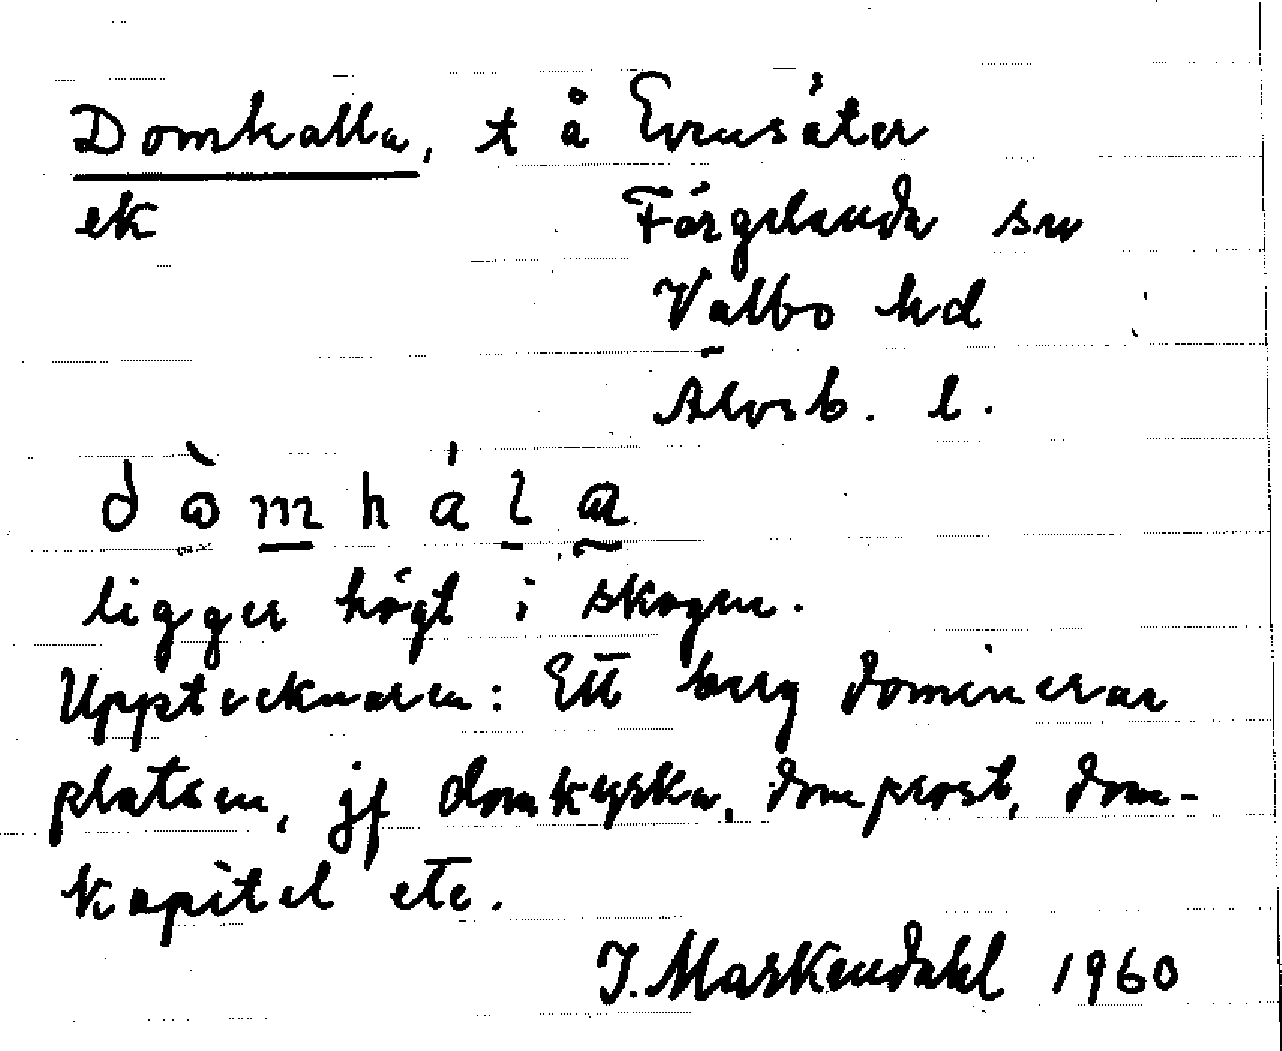 Domhalla, t å Evensäter
ek Färgelanda sn
Valbo hd
Älvsb. l.
dòmhála
ligger högt i skogen.
Upptecknaren: Ett berg dominerar
platsen, jf domkyrka, domprost, dom-
kapitel etc.
J. Markendahl 1960